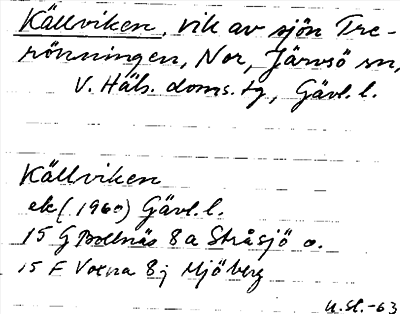 Källviken, vik av sjön Tre-
rönningen, Nor, Järvsö sn,
V. Häls. doms. tg, Gävl. l.
Källviken
ek (1960) Gävl. l.
15 G Bollnäs 8a Stråsjö o.
15 F Voxna 8j Mjöberg
U.St.-63